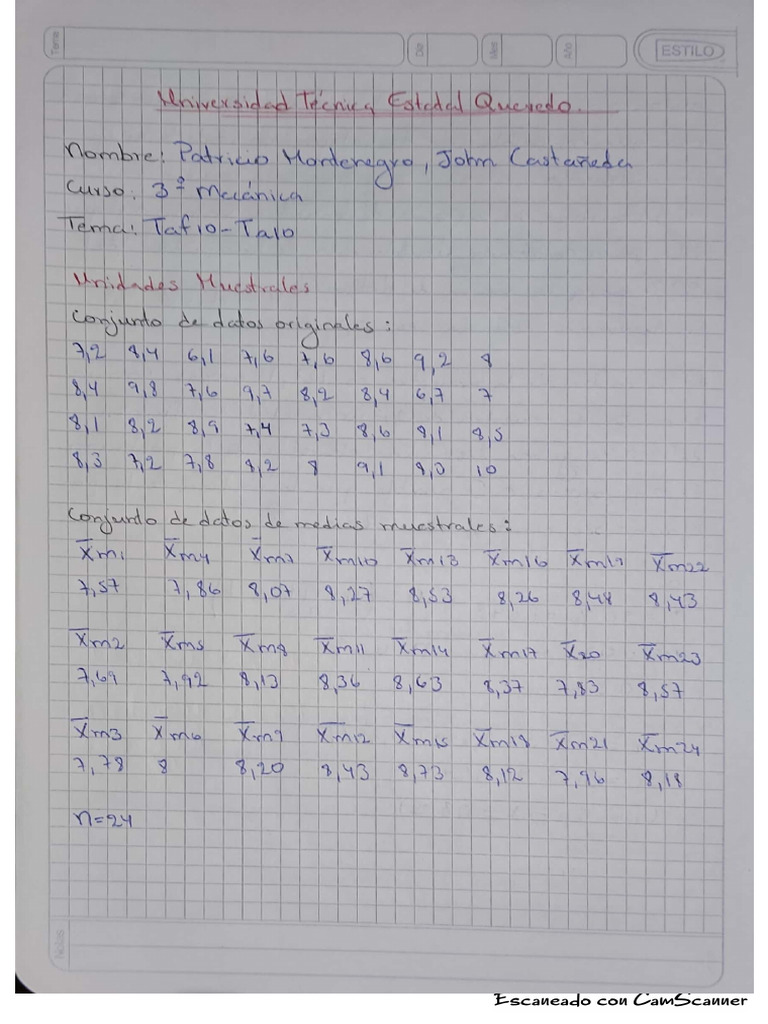 Tema
Dia
Mes
Año
ESTILO
Universidad Técnica Estatal Quevedo.
Nombre: Patricio Montenegro, John Castañeda
Curso: 3º Mecánica
Tema: Taf10-Ta10
Unidades Muestrales
Conjunto de datos originales:
7,2 8,4 6,1 7,6 7,6 8,6 9,2 8
8,4 9,8 7,6 9,7 8,2 8,4 6,7 7
8,1 8,2 8,9 7,4 7,3 8,6 8,1 8,5
8,3 7,2 7,8 8,2 8 9,1 10
Conjunto de datos de medias muestrales:
X̄m1 X̄m4 X̄m7 X̄m10 X̄m13 X̄m16 X̄m19 X̄m22
7,57 7,86 8,07 8,27 8,53 8,26 8,48 8,43
X̄m2 X̄m5 X̄m8 X̄m11 X̄m14 X̄m17 X̄20 X̄m23
7,69 7,92 8,13 8,36 8,63 8,37 7,83 8,57
X̄m3 X̄m6 X̄m9 X̄m12 X̄m15 X̄m18 X̄m21 X̄m24
7,78 8 8,20 8,43 8,73 8,12 7,96 8,18
n=24
Notas
Escaneado con CamScanner